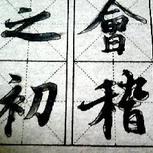 會稽
之初